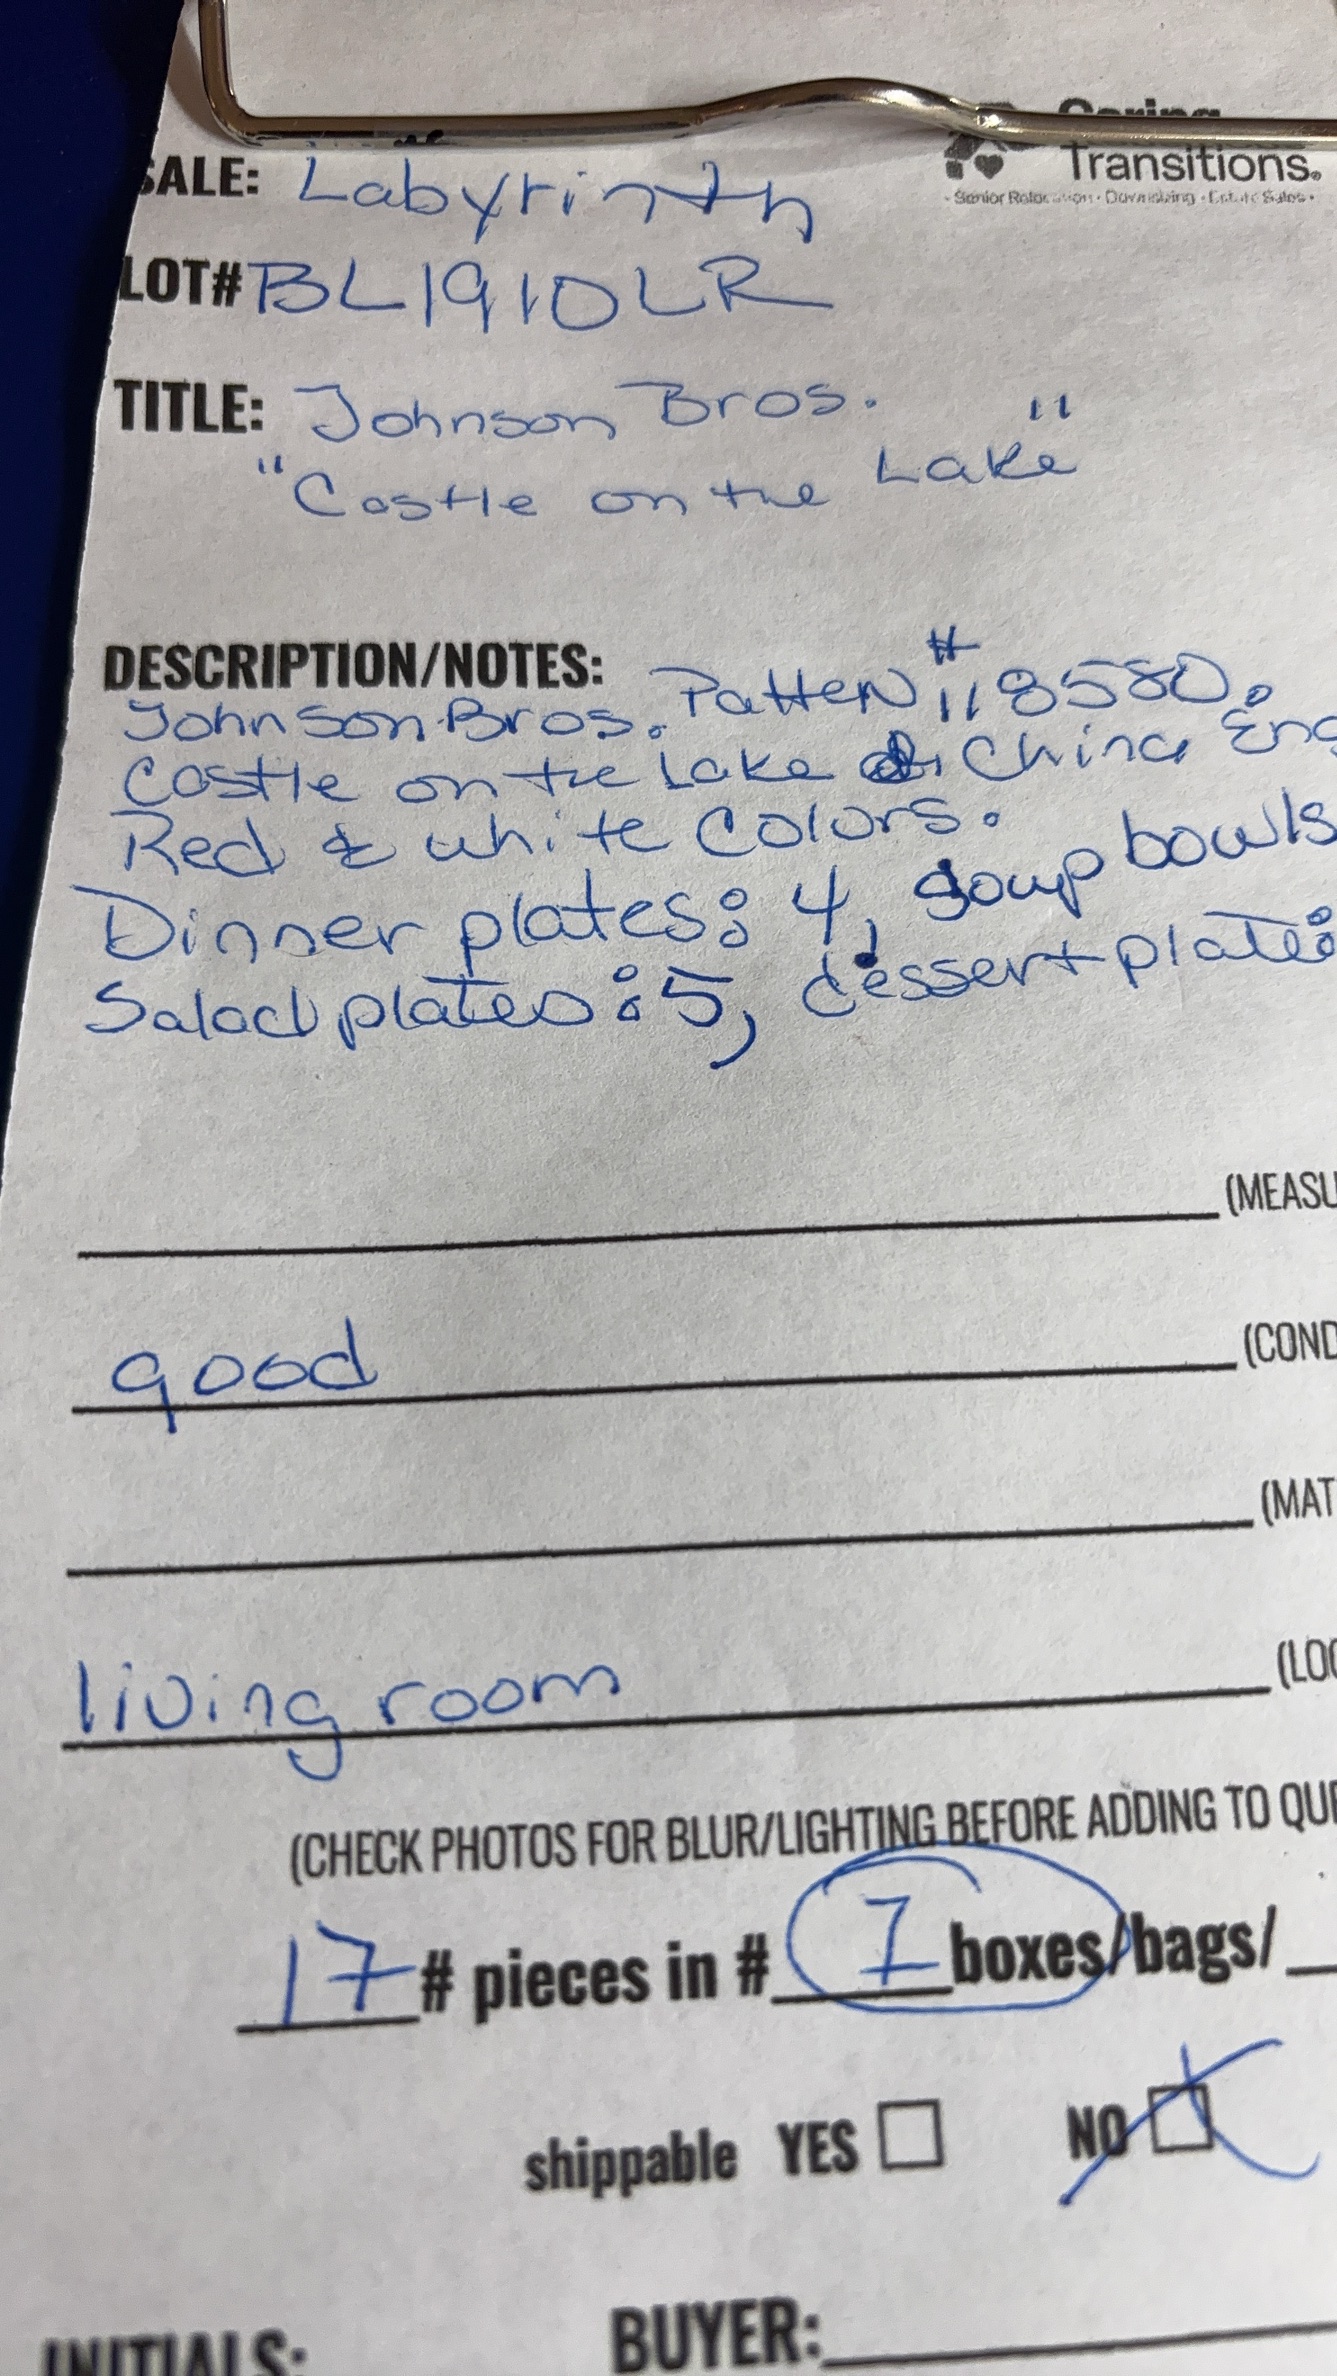 Caring
Transitions®
Senior Relocation • Downsizing • Estate Sales •
SALE: Labyrinth
LOT# BL1910LR
TITLE: Johnson Bros.
"Castle on the Lake"
DESCRIPTION/NOTES:
Johnson Bros. Pattern #118580.
Castle on the Lake China Eng
Red & white colors.
Dinner plates: 4, soup bowls
Salad plates: 5, dessert plate:
(MEASU
good (COND
(MAT
living room (LOC
(CHECK PHOTOS FOR BLUR/LIGHTING BEFORE ADDING TO QUE
17 # pieces in # 1 boxes/bags/
shippable YES NO
INITIALS: BUYER: